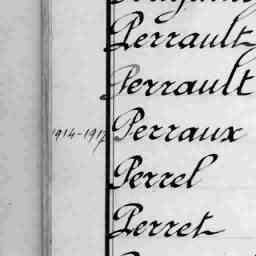 Perrault
Perrault
1914-1917 Perraux
Perrel
Perret